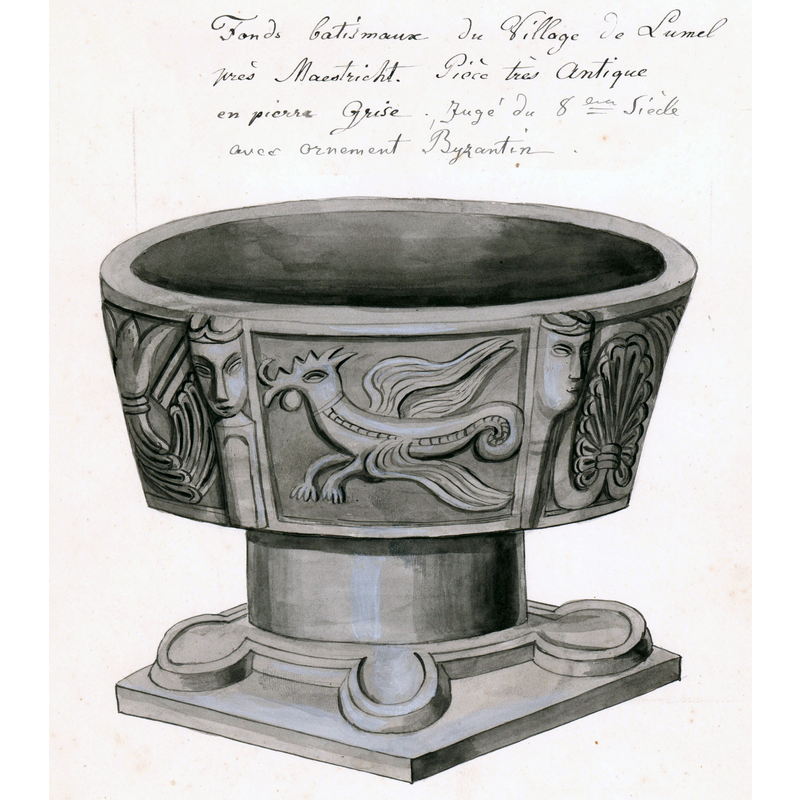 Fonds batismaux du Village de Lumel
près Maestricht. Pièce très Antique
en pierre Grise. Jugé du 8 eme Siècle
avec ornement Byzantin.